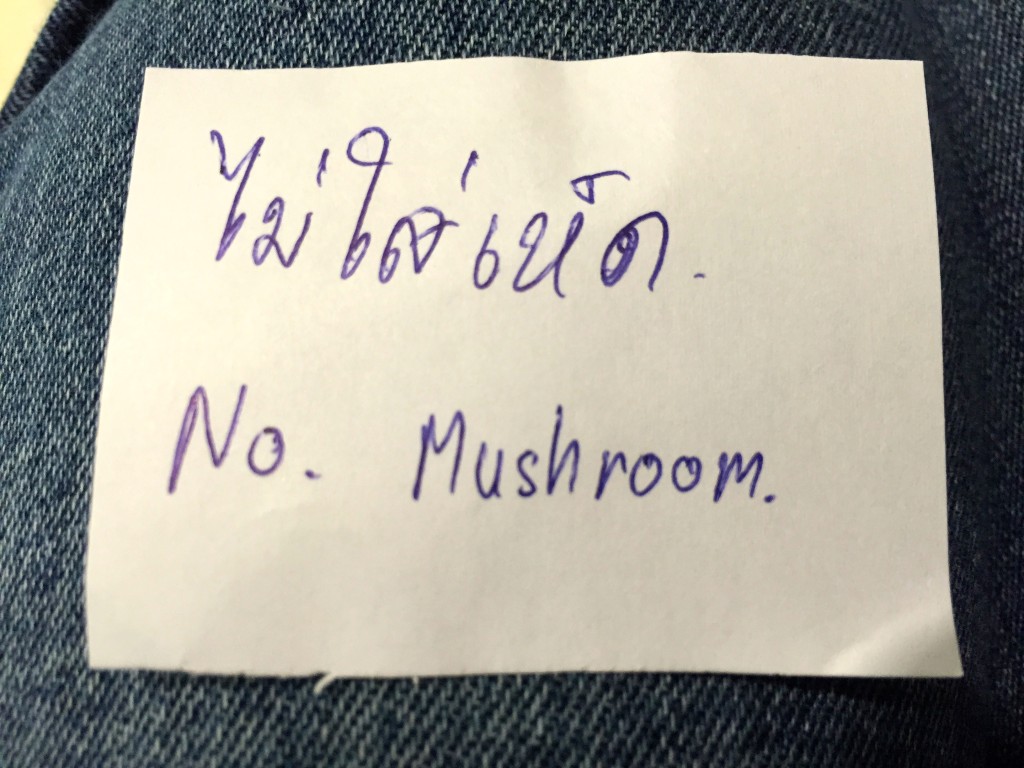 ไม่ใส่เห็ด.
No. Mushroom.